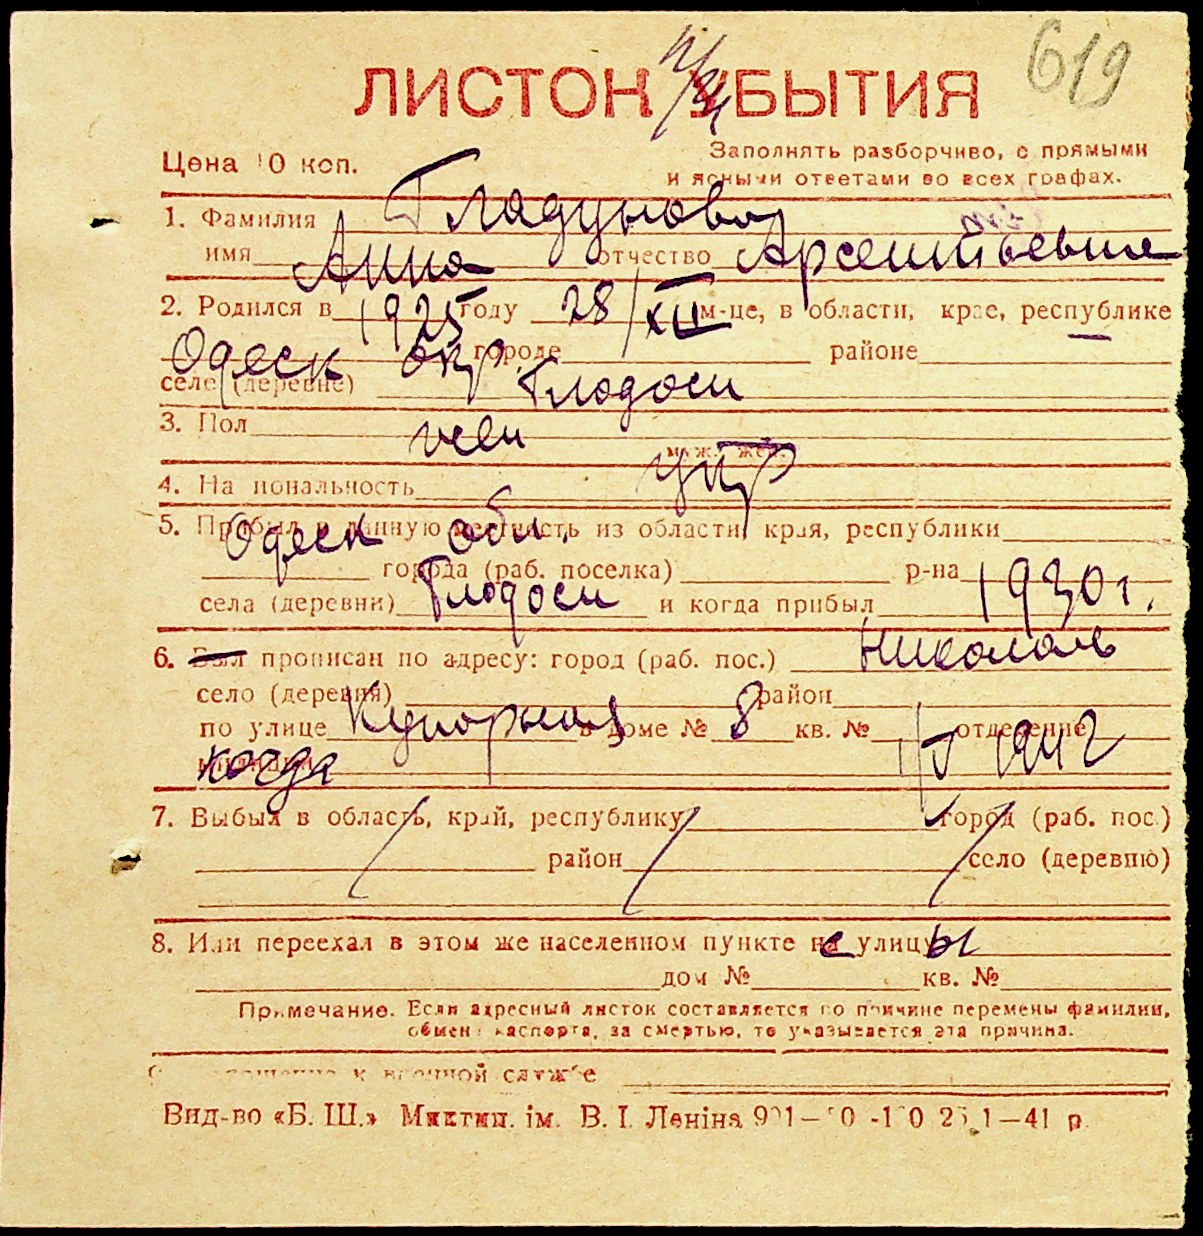 619
ЛИСТОК УБЫТИЯ
Цена 10 коп.
Заполнять разборчиво, с прямыми
и ясными ответами во всех графах.
1. Фамилия Гладунова
имя Анна отчество Арсентьевна
2. Родился в 1925 году 28/XII м-це, в области, крае, республике
Одеск окр. городе районе
селе (деревне) Глодоси
3. Пол жен
муж. жен.
4. Национальность укр
5. Прибыл в данную местность из области, края, республики
Одеск обл. города (раб. поселка) р-на
села (деревни) Глодоси и когда прибыл 1930 г.
6. Был прописан по адресу: город (раб. пос.) Николаев
село (деревня) район
по улице Купорная в доме № 8 кв. № отделение
милиции когда 1942
7. Выбыл в область, край, республику город (раб. пос.)
район село (деревню)
8. Или переехал в этом же населенном пункте с улицы
дом № кв. №
Примечание. Если адресный листок составляется по причине перемены фамилии,
обмена паспорта, за смертью, то указывается эта причина.
к военной службе
Вид-во «Б. Ш.» Миктип. ім. В. І. Леніна 1—41 р.